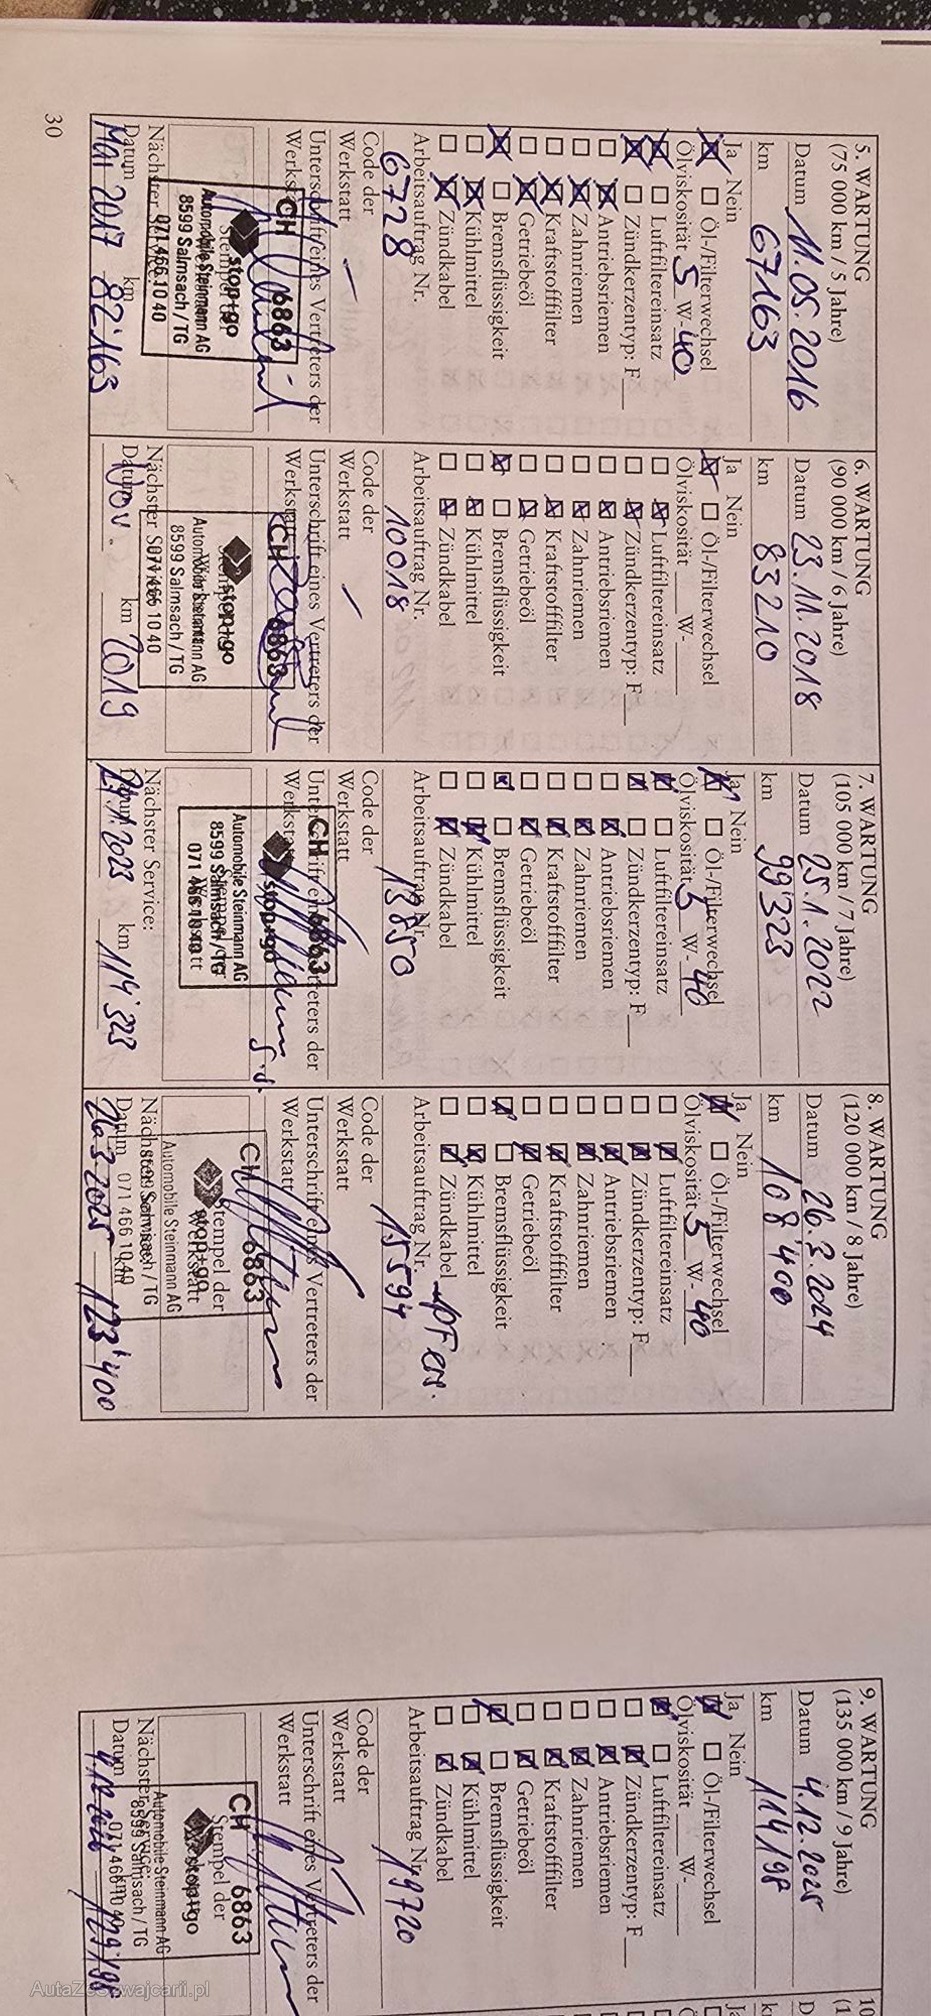 5. WARTUNG
(75 000 km / 5 Jahre)
Datum 11.05.2016
km 67163
Ja Nein
☒ ☐ Öl-/Filterwechsel
Ölviskosität 5 W- 40
☒ ☐ Luftfiltereinsatz
☒ ☐ Zündkerzentyp: F
☐ ☒ Antriebsriemen
☐ ☒ Zahnriemen
☐ ☒ Kraftstofffilter
☐ ☒ Getriebeöl
☒ ☐ Bremsflüssigkeit
☐ ☒ Kühlmittel
☐ ☒ Zündkabel
Arbeitsauftrag Nr.
6728
Code der
Werkstatt
Unterschrift eines Vertreters der
Werkstatt
CH 6863
stop+go
Automobile Steinmann AG
8599 Salmsach / TG
071 466 10 40
Nächster Service:
Datum km
Mai 2017 82'163
6. WARTUNG
(90 000 km / 6 Jahre)
Datum 23.11.2018
km 83210
Ja Nein
☒ ☐ Öl-/Filterwechsel
Ölviskosität W-
☐ ☒ Luftfiltereinsatz
☐ ☒ Zündkerzentyp: F
☐ ☒ Antriebsriemen
☐ ☒ Zahnriemen
☐ ☒ Kraftstofffilter
☐ ☒ Getriebeöl
☒ ☐ Bremsflüssigkeit
☐ ☒ Kühlmittel
☐ ☒ Zündkabel
Arbeitsauftrag Nr.
10018
Code der
Werkstatt
Unterschrift eines Vertreters der
Werkstatt
CH 6863
stop+go
Automobile Steinmann AG
8599 Salmsach / TG
071 466 10 40
Nächster Service:
Datum km
Nov. 2019
7. WARTUNG
(105 000 km / 7 Jahre)
Datum 25.1.2022
km 99'323
Ja Nein
☒ ☐ Öl-/Filterwechsel
Ölviskosität 5 W- 40
☒ ☐ Luftfiltereinsatz
☒ ☐ Zündkerzentyp: F
☐ ☒ Antriebsriemen
☐ ☒ Zahnriemen
☐ ☒ Kraftstofffilter
☐ ☒ Getriebeöl
☒ ☐ Bremsflüssigkeit
☐ ☒ Kühlmittel
☐ ☒ Zündkabel
Arbeitsauftrag Nr.
13750
Code der
Werkstatt
Unterschrift eines Vertreters der
Werkstatt
CH 6863
stop+go
Automobile Steinmann AG
8599 Salmsach / TG
071 466 10 40
Nächster Service:
Datum km 114'323
8. WARTUNG
(120 000 km / 8 Jahre)
Datum 26.3.2024
km 108'400
Ja Nein
☒ ☐ Öl-/Filterwechsel
Ölviskosität 5 W- 40
☐ ☒ Luftfiltereinsatz
☐ ☒ Zündkerzentyp: F
☐ ☒ Antriebsriemen
☐ ☒ Zahnriemen
☐ ☒ Kraftstofffilter
☐ ☒ Getriebeöl
☒ ☐ Bremsflüssigkeit
☐ ☒ Kühlmittel
☐ ☒ Zündkabel
Arbeitsauftrag Nr.
15594
Code der
Werkstatt
Unterschrift eines Vertreters der
Werkstatt
CH 6863
Stempel der
Werkstatt
stop+go
Automobile Steinmann AG
8599 Salmsach / TG
071 466 10 40
Nächster Service:
Datum km
26.3.2025 123'400
30
9. WARTUNG
(135 000 km / 9 Jahre)
Datum 4.12.2025
km 114198
Ja Nein
☒ ☐ Öl-/Filterwechsel
Ölviskosität W-
☒ ☐ Luftfiltereinsatz
☐ ☒ Zündkerzentyp: F
☐ ☒ Antriebsriemen
☐ ☒ Zahnriemen
☐ ☒ Kraftstofffilter
☐ ☒ Getriebeöl
☒ ☐ Bremsflüssigkeit
☐ ☒ Kühlmittel
☐ ☒ Zündkabel
Arbeitsauftrag Nr.
19720
Code der
Werkstatt
Unterschrift eines Vertreters der
Werkstatt
CH 6863
Stempel der
stop+go
Automobile Steinmann AG
8599 Salmsach / TG
071 466 10 40
Nächster Service:
Datum km
4.12.2026 129'198
AutaZeSzwajcarii.pl